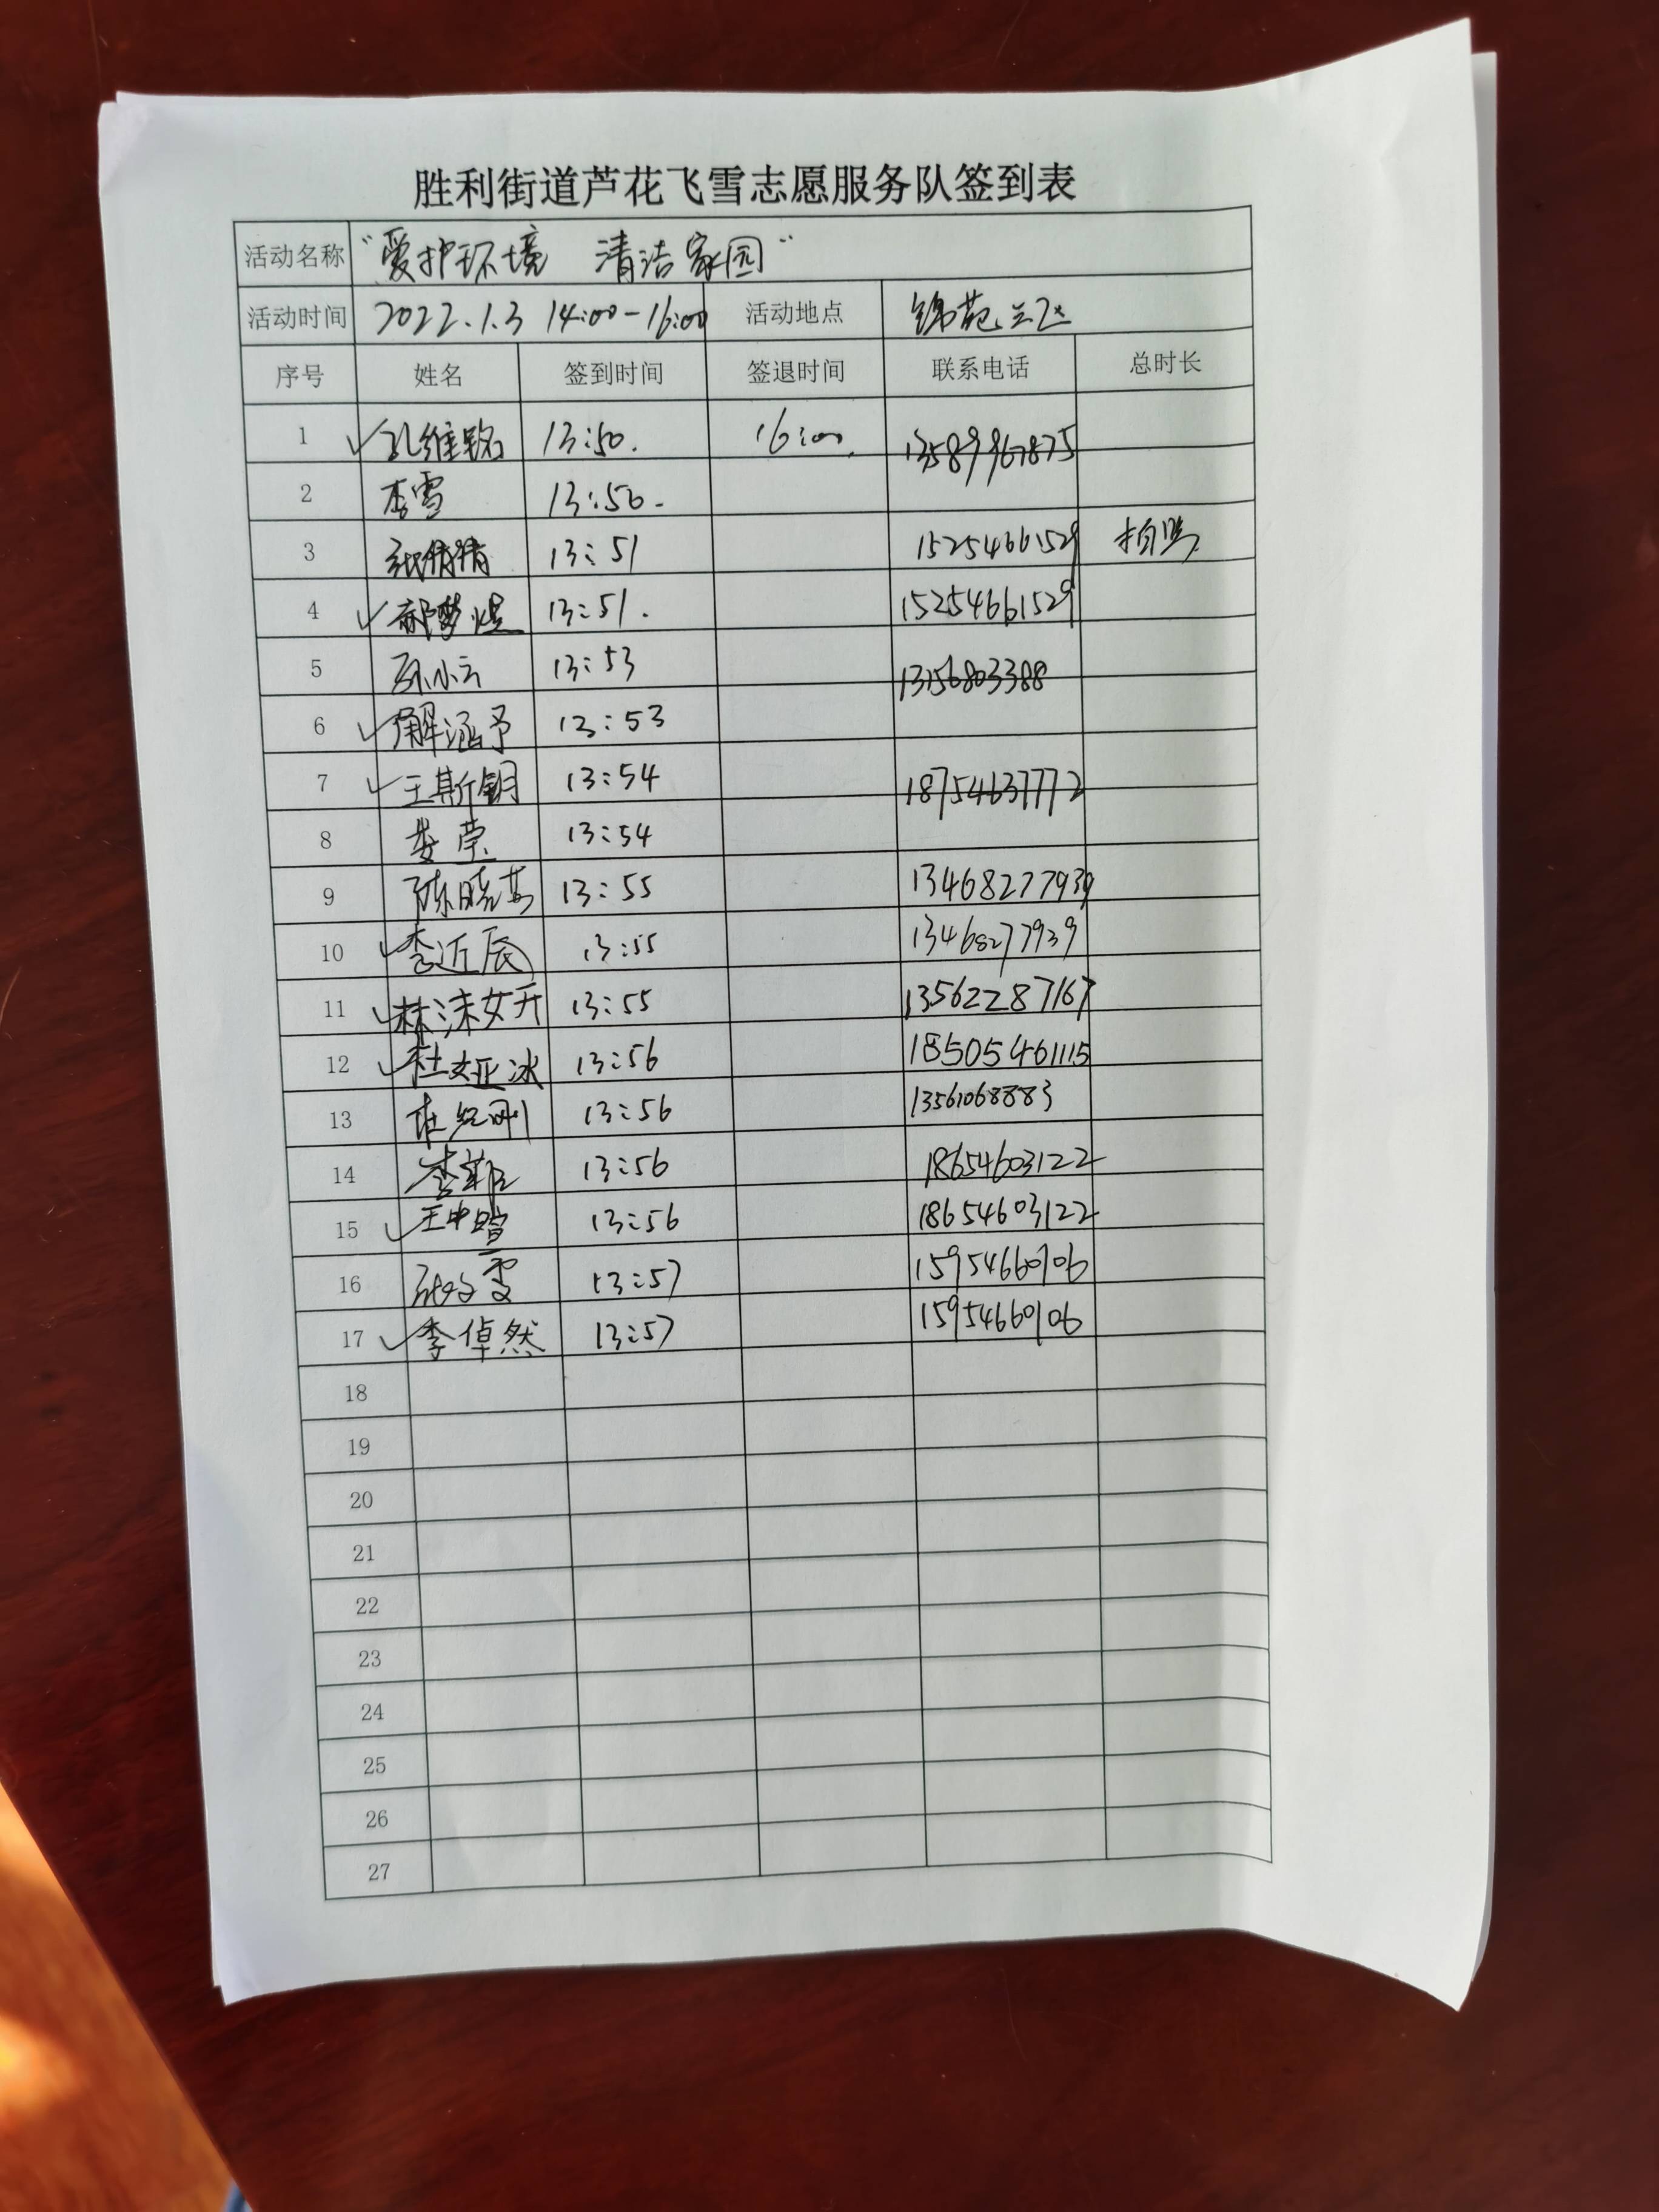 胜利街道芦花飞雪志愿服务队签到表
活动名称 "爱护环境 清洁家园"
活动时间 2022.1.3 14:00-16:00 活动地点 锦苑三区
序号 姓名 签到时间 签退时间 联系电话 总时长
1 ✓孔维铭 13:50. 16:00. 13589967875
2 李雪 13:50.
3 张倩倩 13:51 15254661529 拍照
4 ✓郝梦煜 13:51. 15254661529
5 孙小云 13:53 13156803388
6 ✓解涵予 13:53
7 ✓王斯钥 13:54 18754637772
8 娄荣 13:54
9 陈晓 13:55 13468277939
10 ✓李近辰 13:55 13468277939
11 ✓林沫妍 13:55 13562287167
12 ✓杜娅冰 13:56 18505461115
13 杜纪刚 13:56 13561068883
14 李 13:56 18654603122
15 ✓王中暄 13:56 18654603122
16 张文雯 13:57 15954660906
17 ✓李倬然 13:57 15954660906
18
19
20
21
22
23
24
25
26
27